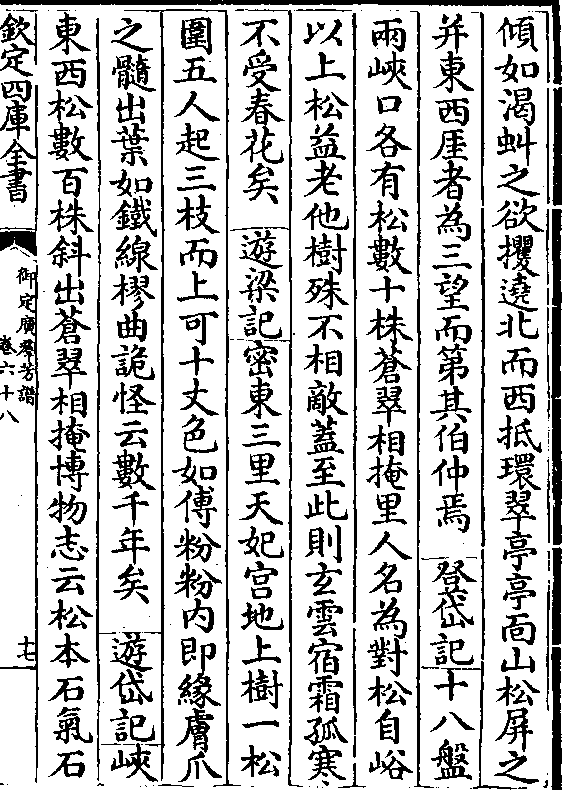 傾如渴虯之欲攫遶北而西抵環翠亭亭面山松屏之
并東西厓者為三望而第其伯仲焉　登岱記十八盤
兩峽口各有松數十株蒼翠相掩里人名為對松自峪
以上松益老他樹殊不相敵蓋至此則玄雲宿霜孤寒
不受春花矣　遊梁記密東三里天妃宫地上樹一松
圍五人起三枝而上可十丈色如傅粉粉内即緣膚爪
之髓出葉如鐵線樛曲詭怪云數千年矣　遊岱記峽
東西松數百株斜出蒼翠相掩博物志云松本石氣石
欽定四庫全書
御定廣羣芳譜
卷六十八
十七